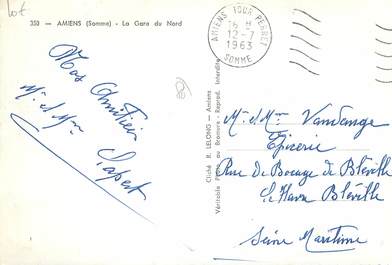 lot
353 - AMIENS (Somme) - La Gare du Nord
AMIENS TOUR PERRET
15 H
12-7
1963
SOMME
Mr et Mme
Cliché R. LELONG - Amiens
Véritable Photo au Bromure - Reprod. Interdite
Mr. et Mme Vandange
Epicerie
Rue du Bocage de Bléville
Le Havre Bléville
Seine Maritime